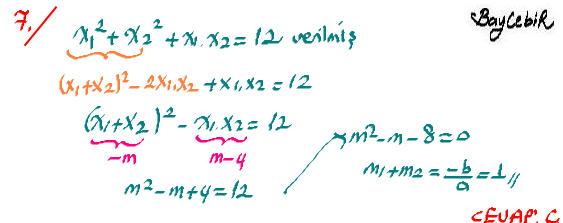 7./
BayCebiR
x₁² + x₂² + x₁.x₂ = 12 verilmiş
(x₁+x₂)² - 2x₁.x₂ + x₁.x₂ = 12
(x₁+x₂)² - x₁.x₂ = 12
-m m-4
m² - m + 4 = 12
m² - m - 8 = 0
m₁ + m₂ = -b/a = 1 //
CEVAP: C